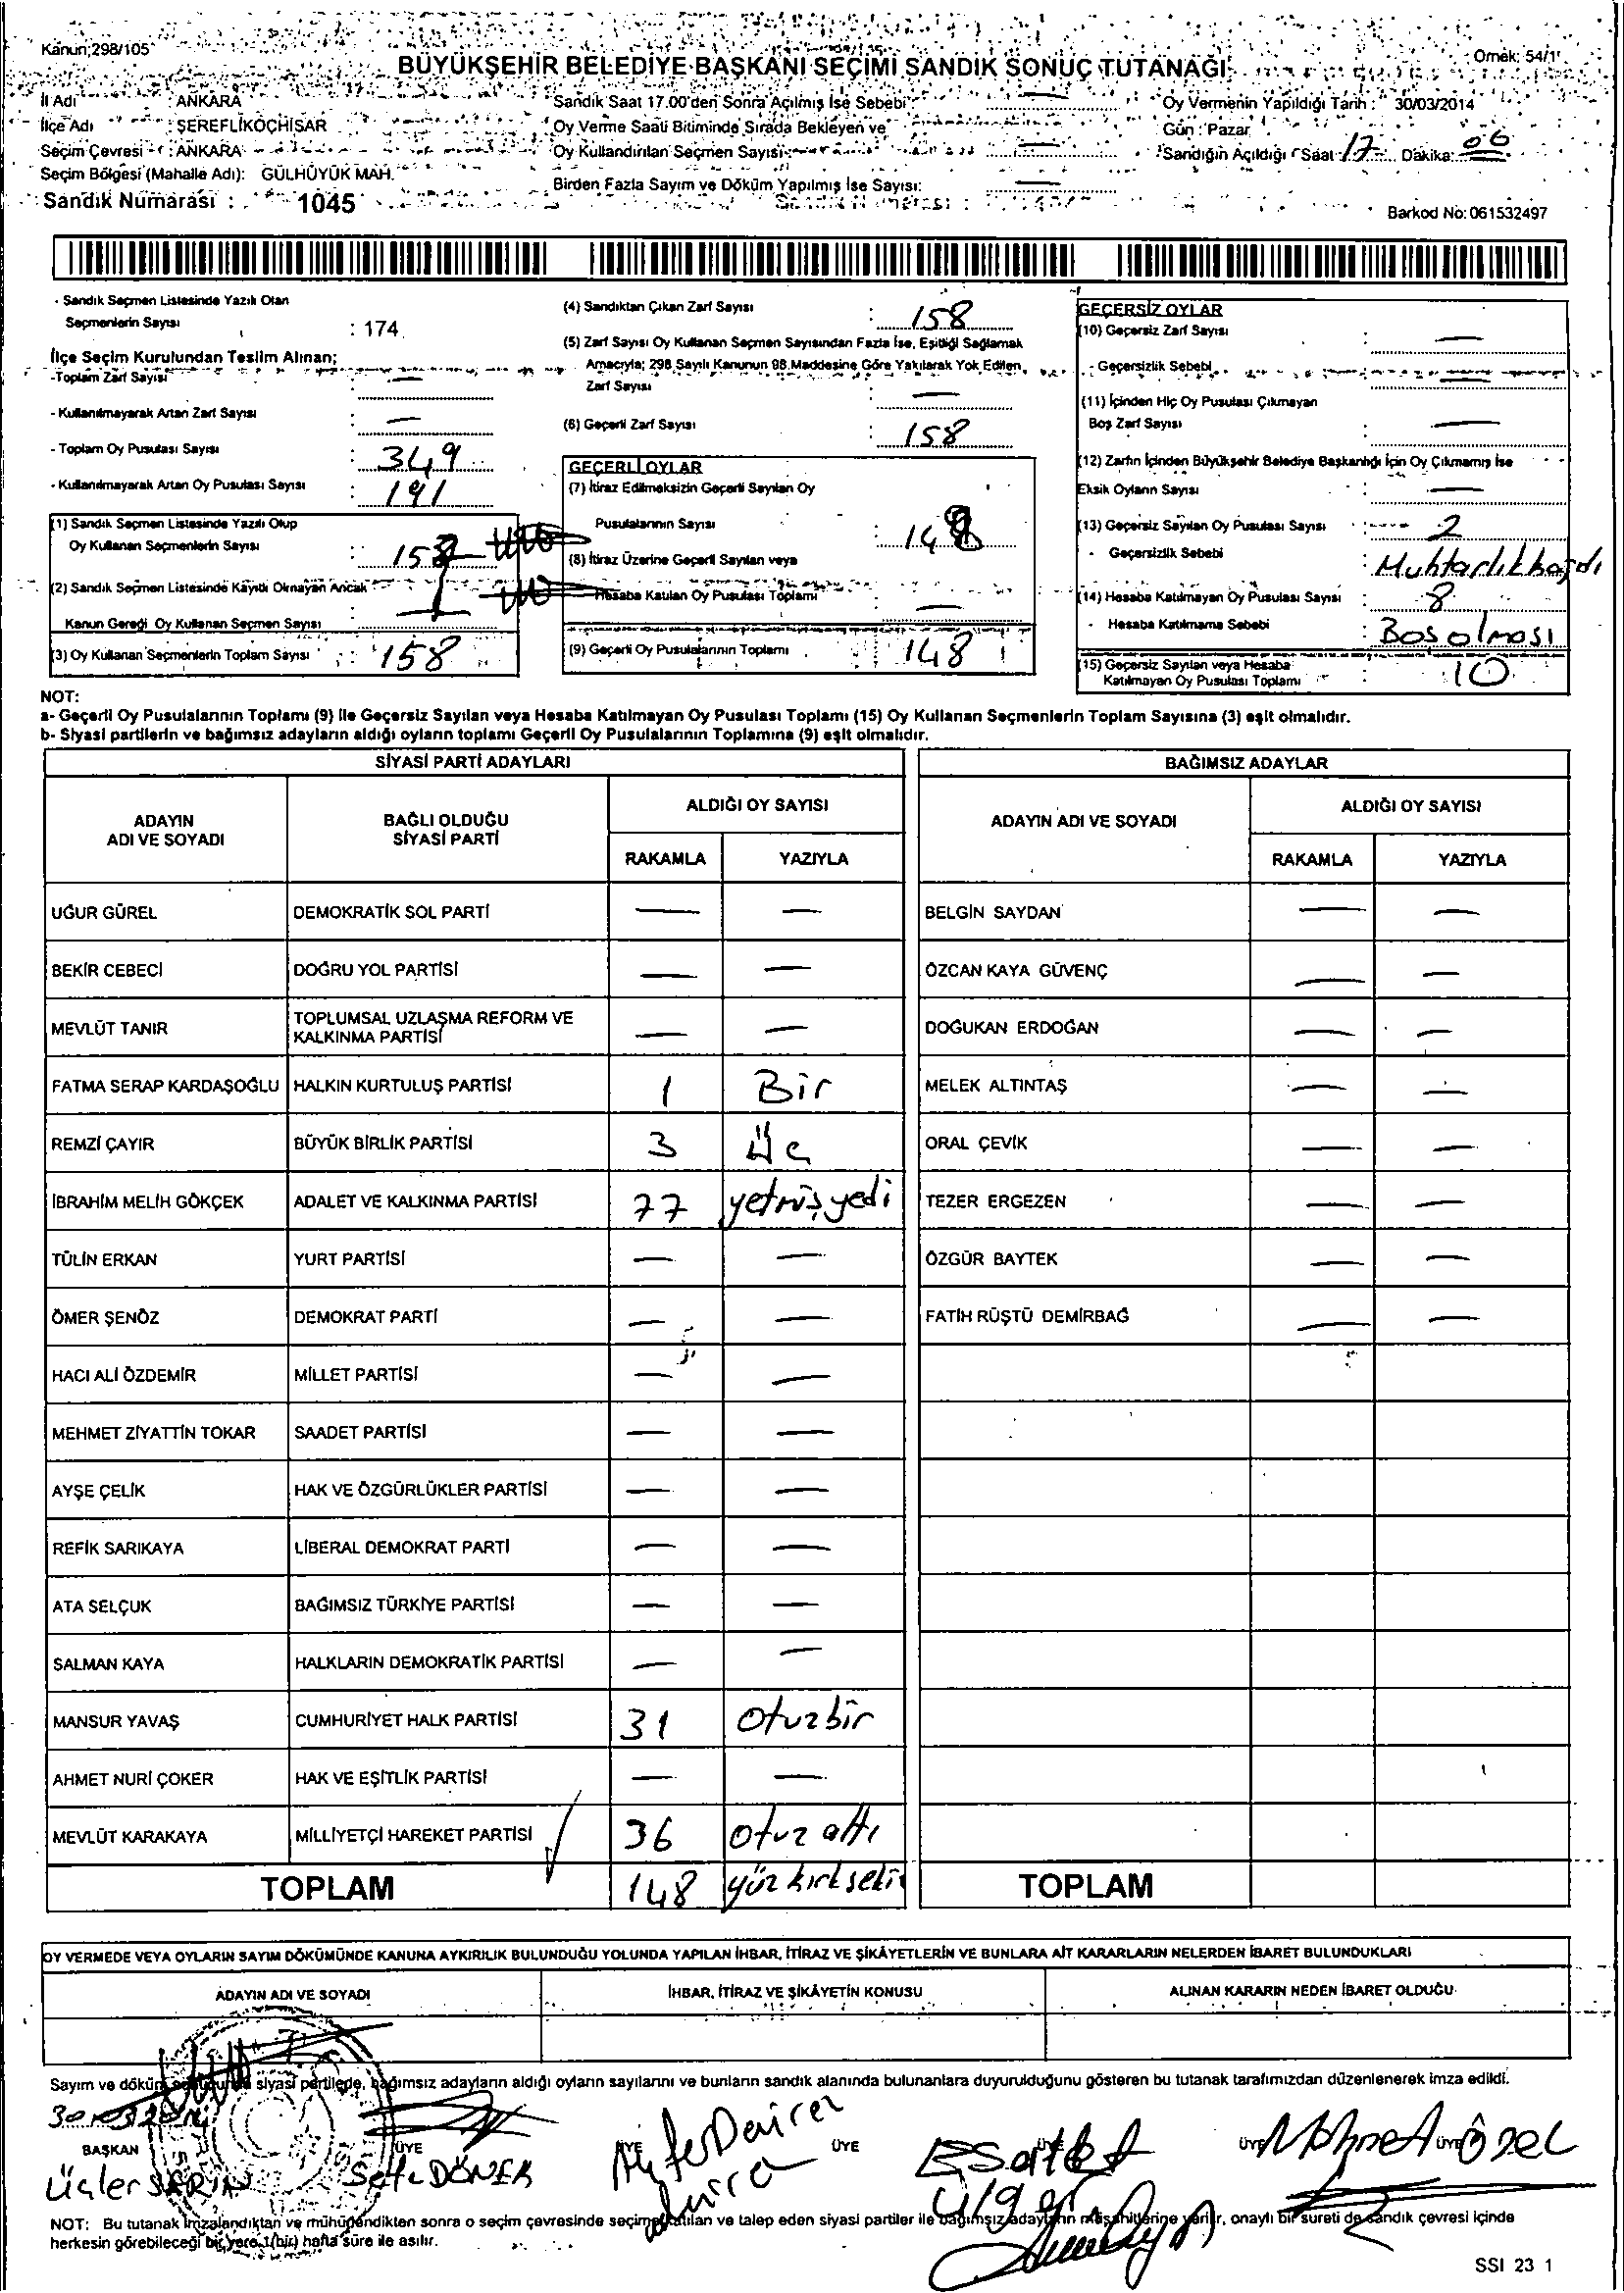 Kanun;298/105
Örnek: 54/1
BÜYÜKŞEHİR BELEDİYE BAŞKANI SEÇİMİ SANDIK SONUÇ TUTANAĞI
İl Adı : ANKARA
İlçe Adı : ŞEREFLİKOÇHİSAR
Seçim Çevresi : ANKARA
Seçim Bölgesi (Mahalle Adı): GÜLHÜYÜK MAH.
Sandık Numarası : 1045
Sandık Saat 17.00'den Sonra Açılmış İse Sebebi : —
Oy Verme Saati Bitiminde Sırada Bekleyen ve
Oy Kullandırılan Seçmen Sayısı : —
Birden Fazla Sayım ve Döküm Yapılmış İse Sayısı: —
Oy Vermenin Yapıldığı Tarih : 30/03/2014
Gün : Pazar
Sandığın Açıldığı Saat : 17 Dakika: 06
Barkod No: 061532497
- Sandık Seçmen Listesinde Yazılı Olan
Seçmenlerin Sayısı : 174
İlçe Seçim Kurulundan Teslim Alınan;
-Toplam Zarf Sayısı : —
- Kullanılmayarak Artan Zarf Sayısı : —
- Toplam Oy Pusulası Sayısı : 349
- Kullanılmayarak Artan Oy Pusulası Sayısı : 191
(1) Sandık Seçmen Listesinde Yazılı Olup
Oy Kullanan Seçmenlerin Sayısı :
(2) Sandık Seçmen Listesinde Kayıtlı Olmayan Ancak
Kanun Gereği Oy Kullanan Seçmen Sayısı
(3) Oy Kullanan Seçmenlerin Toplam Sayısı : 158
(4) Sandıktan Çıkan Zarf Sayısı : 158
(5) Zarf Sayısı Oy Kullanan Seçmen Sayısından Fazla İse, Eşitliği Sağlamak
Amacıyla; 298 Sayılı Kanunun 98.Maddesine Göre Yakılarak Yok Edilen
Zarf Sayısı —
(6) Geçerli Zarf Sayısı : 158
GEÇERLİ OYLAR
(7) İtiraz Edilmeksizin Geçerli Sayılan Oy
Pusulalarının Sayısı : 148
(8) İtiraz Üzerine Geçerli Sayılan veya
Hesaba Katılan Oy Pusulası Toplamı —
(9) Geçerli Oy Pusulalarının Toplamı : 148
GEÇERSİZ OYLAR
(10) Geçersiz Zarf Sayısı : —
- Geçersizlik Sebebi : —
(11) İçinden Hiç Oy Pusulası Çıkmayan
Boş Zarf Sayısı : —
(12) Zarfın İçinden Büyükşehir Belediye Başkanlığı İçin Oy Çıkmamış İse
Eksik Oyların Sayısı : —
(13) Geçersiz Sayılan Oy Pusulası Sayısı : 2
- Geçersizlik Sebebi : Muhtarlık
(14) Hesaba Katılmayan Oy Pusulası Sayısı : 8
- Hesaba Katılmama Sebebi : Bos olması
(15) Geçersiz Sayılan veya Hesaba
Katılmayan Oy Pusulası Toplamı : 10
NOT:
a- Geçerli Oy Pusulalarının Toplamı (9) ile Geçersiz Sayılan veya Hesaba Katılmayan Oy Pusulası Toplamı (15) Oy Kullanan Seçmenlerin Toplam Sayısına (3) eşit olmalıdır.
b- Siyasi partilerin ve bağımsız adayların aldığı oyların toplamı Geçerli Oy Pusulalarının Toplamına (9) eşit olmalıdır.
SİYASİ PARTİ ADAYLARI
ADAYIN ADI VE SOYADI BAĞLI OLDUĞU SİYASİ PARTİ ALDIĞI OY SAYISI
RAKAMLA YAZIYLA
UĞUR GÜREL DEMOKRATİK SOL PARTİ — —
BEKİR CEBECİ DOĞRU YOL PARTİSİ — —
MEVLÜT TANIR TOPLUMSAL UZLAŞMA REFORM VE KALKINMA PARTİSİ — —
FATMA SERAP KARDAŞOĞLU HALKIN KURTULUŞ PARTİSİ 1 Bir
REMZİ ÇAYIR BÜYÜK BİRLİK PARTİSİ 3 Üç
İBRAHİM MELİH GÖKÇEK ADALET VE KALKINMA PARTİSİ 77 yetmiş yedi
TÜLİN ERKAN YURT PARTİSİ — —
ÖMER ŞENÖZ DEMOKRAT PARTİ — —
HACI ALİ ÖZDEMİR MİLLET PARTİSİ — —
MEHMET ZİYATTİN TOKAR SAADET PARTİSİ — —
AYŞE ÇELİK HAK VE ÖZGÜRLÜKLER PARTİSİ — —
REFİK SARIKAYA LİBERAL DEMOKRAT PARTİ — —
ATA SELÇUK BAĞIMSIZ TÜRKİYE PARTİSİ — —
SALMAN KAYA HALKLARIN DEMOKRATİK PARTİSİ — —
MANSUR YAVAŞ CUMHURİYET HALK PARTİSİ 31 otuzbir
AHMET NURİ ÇOKER HAK VE EŞİTLİK PARTİSİ — —
MEVLÜT KARAKAYA MİLLİYETÇİ HAREKET PARTİSİ 36 otuz altı
TOPLAM 148 yüz kırk seki
BAĞIMSIZ ADAYLAR
ADAYIN ADI VE SOYADI ALDIĞI OY SAYISI
RAKAMLA YAZIYLA
BELGİN SAYDAN — —
ÖZCAN KAYA GÜVENÇ — —
DOĞUKAN ERDOĞAN — —
MELEK ALTINTAŞ — —
ORAL ÇEVİK — —
TEZER ERGEZEN — —
ÖZGÜR BAYTEK — —
FATİH RÜŞTÜ DEMİRBAĞ — —
TOPLAM
OY VERMEDE VEYA OYLARIN SAYIM DÖKÜMÜNDE KANUNA AYKIRILIK BULUNDUĞU YOLUNDA YAPILAN İHBAR, İTİRAZ VE ŞİKÂYETLERİN VE BUNLARA AİT KARARLARIN NELERDEN İBARET BULUNDUKLARI
ADAYIN ADI VE SOYADI İHBAR, İTİRAZ VE ŞİKÂYETİN KONUSU ALINAN KARARIN NEDEN İBARET OLDUĞU
Sayım ve döküm sonucunda siyasi partilerle, bağımsız adayların aldığı oyların sayılarını ve bunların sandık alanında bulunanlara duyurulduğunu gösteren bu tutanak tarafımızdan düzenlenerek imza edildi.
BAŞKAN ÜYE ÜYE ÜYE ÜYE ÜYE ÜYE
DÖNEK
NOT: Bu tutanak imzalandıktan ve mühürlendikten sonra o seçim çevresinde seçime katılan ve talep eden siyasi partiler ile bağımsız adayların müşahitlerine verilir, onaylı bir sureti de sandık çevresi içinde
herkesin görebileceği bir yere 1(bir) hafta süre ile asılır.
SSI 23 1